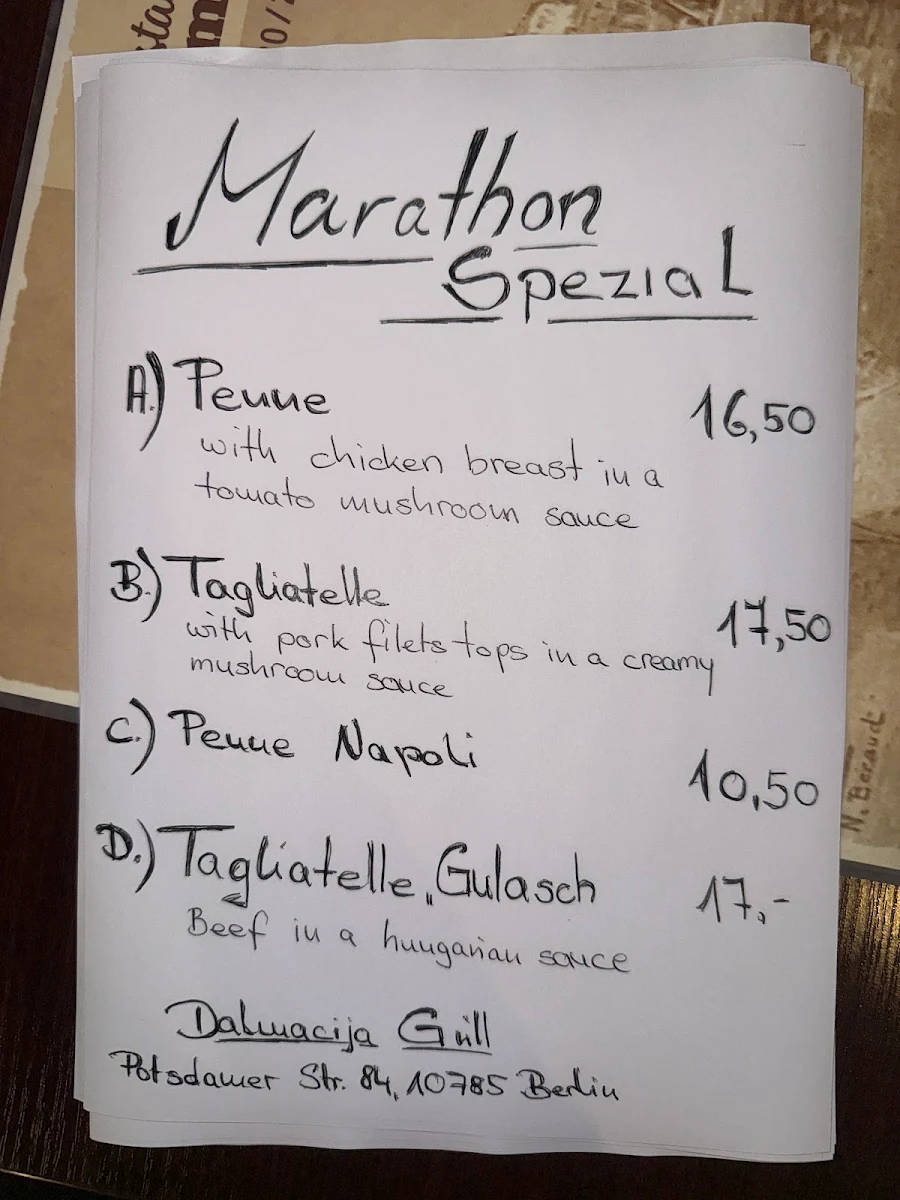 Marathon
Spezial
A.) Penne 16,50
with chicken breast in a
tomato mushroom sauce
B.) Tagliatelle 17,50
with pork filets tops in a creamy
mushroom sauce
C.) Penne Napoli 10,50
D.) Tagliatelle „Gulasch 17,-
Beef in a hungarian sauce
Dalmacija Grill
Potsdamer Str. 84, 10785 Berlin
N. Beraud.